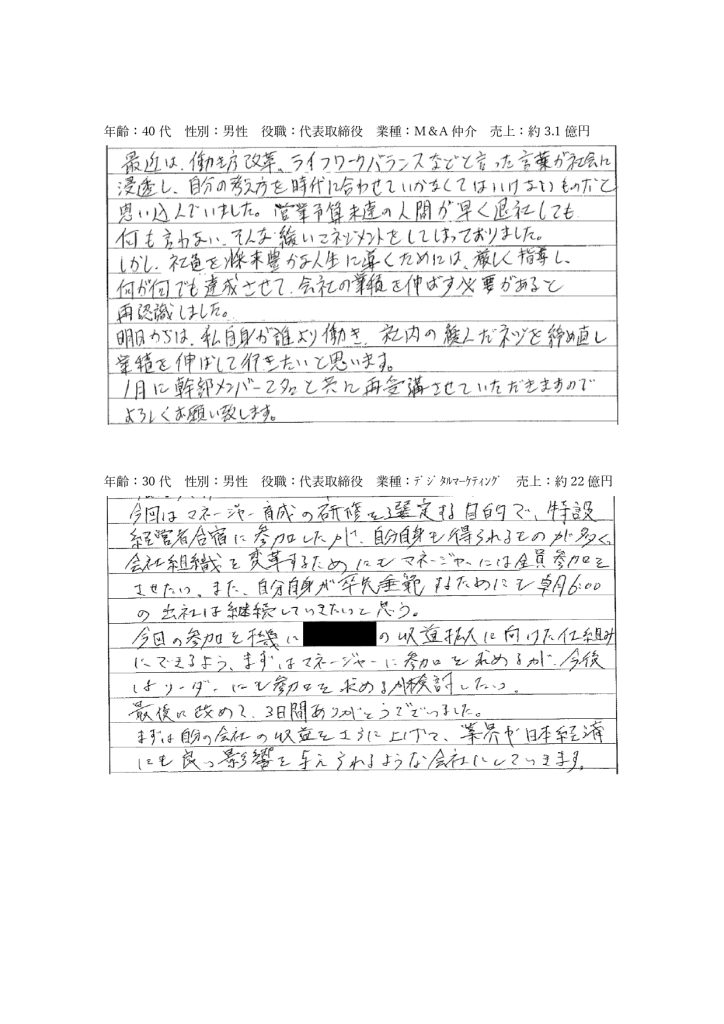 年齢：40 代　性別：男性　役職：代表取締役　業種：M＆A 仲介　売上：約 3.1 億円
最近は、働き方改革、ライフワークバランスなどと言った言葉が社会に
浸透し、自分の考え方を時代に合わせていかなくてはいけないものだと
思い込んでいました。営業予算未達の人間が早く退社しても
何も言わない、そんな緩いマネジメントをしてしまっておりました。
しかし、社員を将来豊かな人生に導くためには、厳しく指導し、
何が何でも達成させて、会社の業績を伸ばす必要があると
再認識しました。
明日からは、私自身が誰より働き、社内の緩んだネジを締め直し
業績を伸ばして行きたいと思います。
1月に幹部メンバー2名と共に再受講させていただきますので
よろしくお願い致します。
年齢：30 代　性別：男性　役職：代表取締役　業種：ﾃﾞｼﾞﾀﾙﾏｰｹﾃｨﾝｸﾞ　売上：約 22 億円
今回はマネージャー育成の研修を選定する目的で、特設
経営者合宿に参加したが、自分自身も得られるものが多く、
会社組織を変革するためにもマネージャーには全員参加を
させたい。また、自分自身が率先垂範するためにも朝6:00
の出社は継続していきたいと思う。
今回の参加を機に の収益拡大に向けた仕組み
にできるよう、まずはマネージャーに参加を求めるが、今後
はリーダーにも参加を求めるか検討したい。
最後に改めて、3日間ありがとうございました。
まずは自分の会社の収益をさらに上げて、業界や日本経済
にも良い影響を与えられるような会社にしていきます。